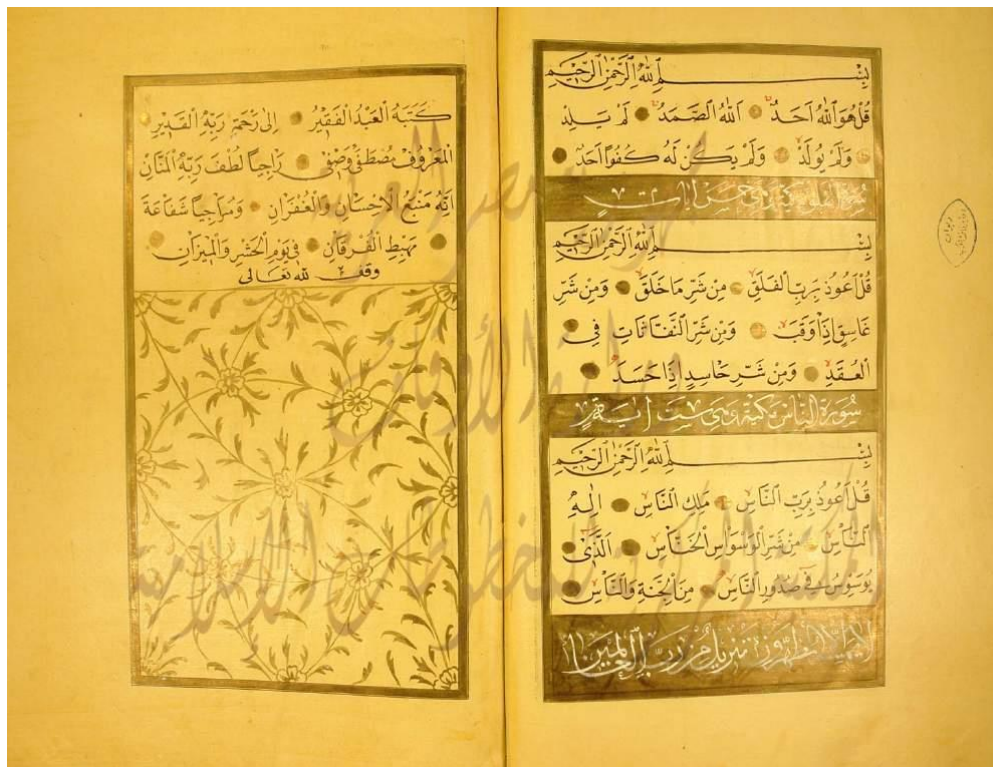 بِسْمِ اللّٰهِ الرَّحْمٰنِ الرَّحٖيمِ
قُلْ هُوَ اللّٰهُ اَحَدٌ اَللّٰهُ الصَّمَدُ لَمْ يَلِدْ
وَلَمْ يُولَدْ وَلَمْ يَكُنْ لَهُ كُفُوًا اَحَدٌ
سورة الفلق مكية وهي خمس ايات
بِسْمِ اللّٰهِ الرَّحْمٰنِ الرَّحٖيمِ
قُلْ اَعُوذُ بِرَبِّ الْفَلَقِ مِنْ شَرِّ مَا خَلَقَ وَمِنْ شَرِّ
غَاسِقٍ اِذَا وَقَبَ وَمِنْ شَرِّ النَّفَّاثَاتِ فِي
الْعُقَدِ وَمِنْ شَرِّ حَاسِدٍ اِذَا حَسَدَ
سورة الناس مكية وهي ست اية
بِسْمِ اللّٰهِ الرَّحْمٰنِ الرَّحٖيمِ
قُلْ اَعُوذُ بِرَبِّ النَّاسِ مَلِكِ النَّاسِ اِلٰهِ
النَّاسِ مِنْ شَرِّ الْوَسْوَاسِ الْخَنَّاسِ اَلَّذٖي
يُوَسْوِسُ فٖي صُدُورِ النَّاسِ مِنَ الْجِنَّةِ وَالنَّاسِ
لا يمسه الا المطهرون تنزيل من رب العالمين
كَتَبَهُ الْعَبْدُ الْفَقٖيرُ اِلٰى رَحْمَةِ رَبِّهِ الْقَدٖيرِ
الْمَعْرُوفُ مُصْطَفٰى وَصْفٖى رَاجِيًا لُطْفَ رَبِّهِ الْمَنَّانِ
اِنَّهُ مَنْبَعُ الْاِحْسَانِ وَالْغُفْرَانِ وَمُرَاجِيًا شَفَاعَةَ
مَهْبِطِ الْفُرْقَانِ فٖي يَوْمِ الْحَشْرِ وَالْمٖيزَانِ
وقف لله تعالى